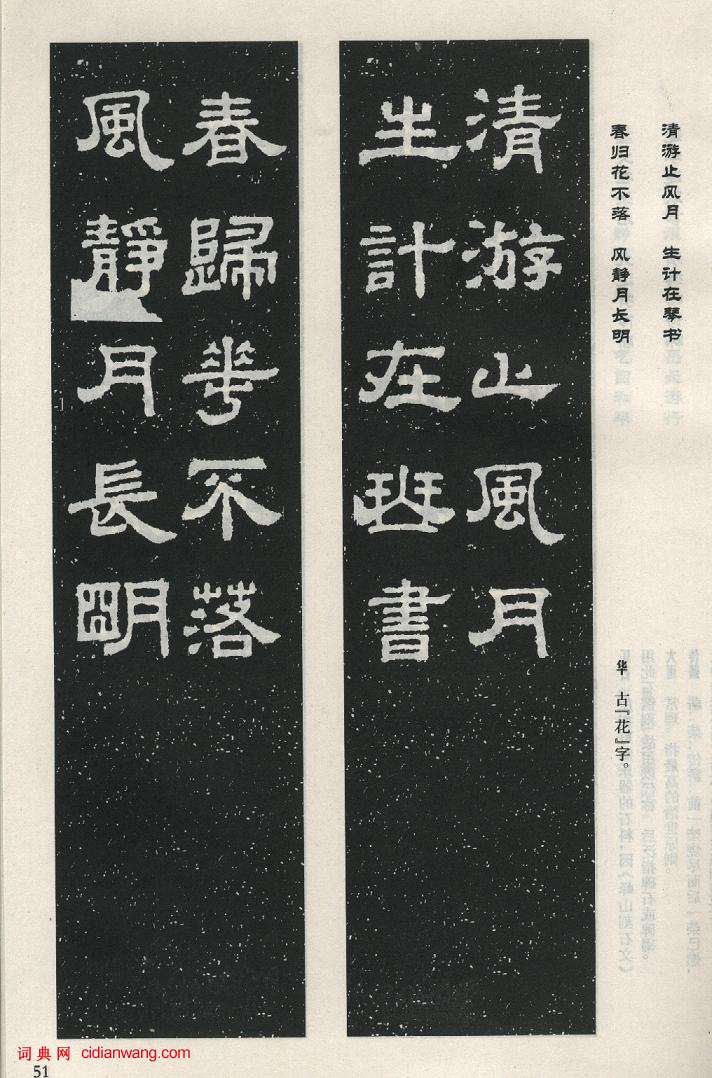 清游止风月　生计在琴书
春归花不落　风静月长明
华　古『花』字。
清游止風月
生計在珡書
春歸華不落
風靜月長朙
词典网 cidianwang.com
51